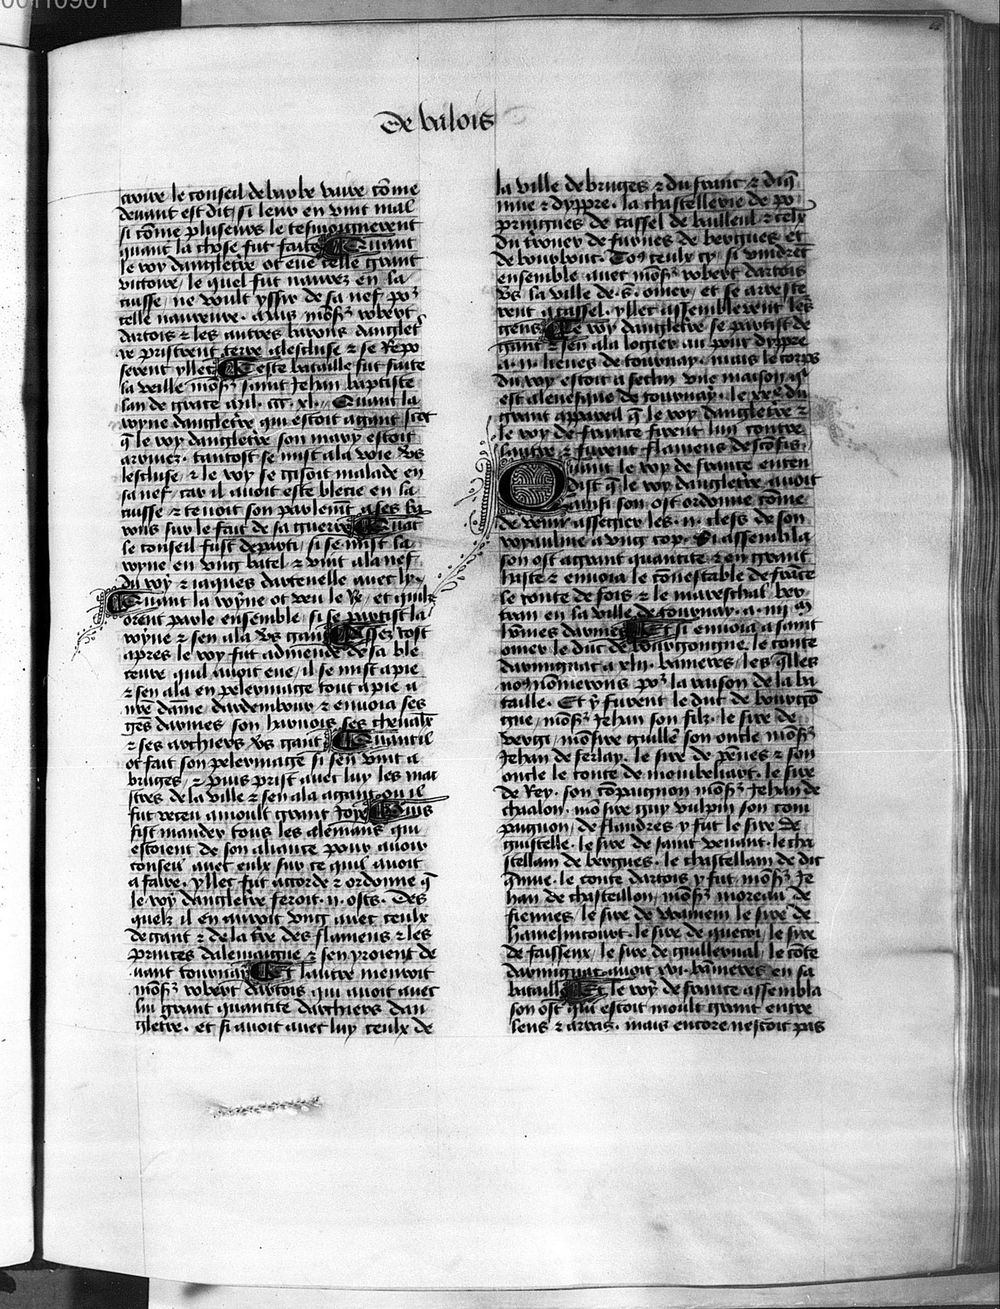 de valois
croire le conseil de barbe vaire cōme
devant est dit / si leur en vint mal
si cōme pluseurs le tesmoignerent
quant la chose fut faite Quant
le roy dangletr̄e ot eue celle grant
victoire / le quel fut naurez en la
cuisse / ne voult yssir de sa nef poʳ
celle naureure · Mais mōsʳ robert
dartois ⁊ les autres barons danglet̄
re pristrent terre alescluse ⁊ se Repo
serent yllec Ceste bataille fut faite
la veille mōsʳ saint Jehan baptiste
lan de grace mil · ccc · xl · Quant la
royne dangletr̄e qui estoit agant scet
q̄ le roy dangletr̄e son mary estoit
arriuez · tantost se mist ala voie v̄s
lescluse / ⁊ le roy se gisoit malade en
sa nef / car il auoit este blecie en la
cuisse ⁊ tenoit son parlemt̄ ases ba
rons sur le fait de sa guerre Quāt
le conseil fust departi / si se mist la
royne en vng batel ⁊ vint ala nef
du roy ⁊ iaques dartenelle auec ly ·
Quant la roȳne ot veu le Rͦ et quilz
orent parle ensemble / si se partist la
roȳne ⁊ sen ala v̄s gant Assez tost
apres le roy fut admende de sa ble
ceure quil auoit eue / il se mist apie
⁊ sen ala en pelerinage tout apie a
nr̄e dāme / dardembour ⁊ enuoia ses
ges darmes son harnois ses cheualx
⁊ ses archiers v̄s gant Quant il
ot fait son pelerinage si sen vint a
bruges / ⁊ puis prist auec luy les mai
stres de la ville ⁊ sen ala agant ou il
fut receu amoult grant Joye Puis
fist mander tous les alemans qui
estoient de son aliance pour auoir
conseil auec eulx sur ce quil auoit
a faire / yllec fut acorde ⁊ ordonne q̄
le roy dangletr̄e feroit · ii · osts · Des
quelz il en auroit vng auec ceulx
de gant ⁊ de la tr̄e des flamens ⁊ les
princes dalemaigne ⁊ sen yroient de
uant tournay Et lautre menroit
mōsʳ robert dartois qui auoit auec
lui grant quantite darchiers dan
gletr̄e · et si auoit auec luy ceulx de
la ville de bruges ⁊ du franc ⁊ de diq̄
mue ⁊ dyppre · la chastellerie de po
pringues de cassel de bailleul · ⁊ celx
du terouer de furnes de bergues et
de bourbourc · Toꝰ ceulx cy / si vindrēt
ensemble auec mōsʳ robert dartois
v̄s la ville de · s̄ · omer / et se arreste
rent acassel · yllec assemblerent leᵘˢ
gens Le roy dangletr̄e se partist de
gant ⁊ sen ala logier au pont dyppre
a · ii · lieues de tournay · mais le corps
du roy estoit a seclin vne maison qⁱ
est aleuesque de tournay · le xxxͤ du
grant appareil q̄ le roy dangletr̄e ⁊
le roy de france firent lun contre
lautre ⁊ furent flamens descōfis ·
Quant le roy de france enten
dist q̄ le roy dangletr̄e auoit
ainsi son ost ordonne cōme
de venir assegier les · ii · clefs de son
royaulme a vng cop · Si assembla
son ost agrant quantite ⁊ en grant
haste ⁊ enuoia le conestable de frāce
le conte de fois ⁊ le mareschal ber
tran en la ville de tournay · a · iiii ᵐ
hōmes darmes Et si enuoia a saint
omer le duc de bourgongne / le conte
darmignac a xlii · banieres / les q̄lles
noꝰ nōmerons poʳ la raison de la ba
taille · Et y furent le duc de bourgō
gne / mōsʳ Jehan son filz · le sire de
vergi / mōsire guillē son oncle mōsʳ
Jehan de serlay · le sire de pēnes ⁊ son
oncle le conte de monbeliart · le sire
de Rey · son cōpaignon mōsʳ Jehan de
chalon · mō sire guy vulpin son com
paignon / de flandres y fut le sire de
guistelle · le sire de saint venant · le cha
stellain de bergues · le chastellain de dic
q̄mue · le conte dartois y fut / mōsʳ Je
han de chasteillon / mōsʳ moreau de
fiennes / le sire de wauein le sire de
hamelincourt · le sire de quecri / le sire
de faisseux / le sire de guillerual · le cōte
darmignac auoit xvi · banieres en sa
bataille Et le roy de france assembla
son ost qui estoit moult grant entre
lens ⁊ arras · mais encore nestoit pas